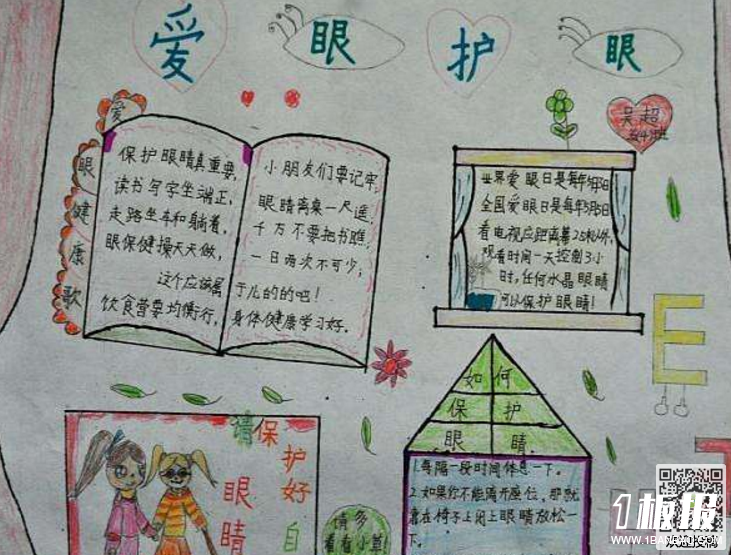 爱 眼 护 眼
吴超
爱眼健康歌
保护眼睛真重要,
读书写字坐端正,
走路坐车和躺着,
眼保健操天天做,
这个应该属
饮食营要均衡行,
小朋友们要记牢,
眼睛离桌一尺遥,
千万不要把书瞧,
一日两次不可少,
于儿的的吧!
身体健康学习好.
世界爱眼日是每年
全国爱眼日是每年
看电视应距离幕
观看时间一天控制3小
时,任何水晶眼睛
可以保护眼睛!
E
如何
保护
眼睛
1.每隔一段时间休息一下。
2.如果你不能离开座位,那就
靠在椅子上闭上眼睛放松一
下。
请保护好自
眼睛
请多
看看小草!
1板报
WWW.1BANBAO.COM
欢迎投稿